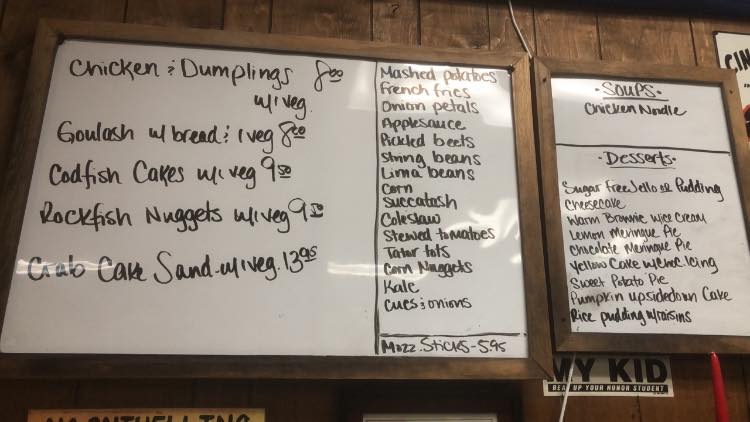 Chicken & Dumplings 8.00
w/1 veg.
Goulash w/ bread & 1 veg 8.00
Codfish Cakes w/1 veg 9.50
Rockfish Nuggets w/1 veg 9.50
Crab Cake Sand. w/1 veg. 13.95
Mashed potatoes
French fries
Onion petals
Applesauce
Pickled beets
String beans
Lima beans
Corn
Succatash
Coleslaw
Stewed tomatoes
Tator tots
Corn Nuggets
Kale
Cukes & onions
Mozz. Sticks - 5.95
· Soups ·
Chicken Noodle
· Desserts ·
Sugar Free Jello or Pudding
Cheesecake
Warm Brownie w/ice Cream
Lemon Meringue Pie
Chocolate Meringue Pie
Yellow Cake w/choc. Icing
Sweet Potato Pie
Pumpkin upsidedown Cake
Rice pudding w/raisins
MY KID
BEAT UP YOUR HONOR STUDENT